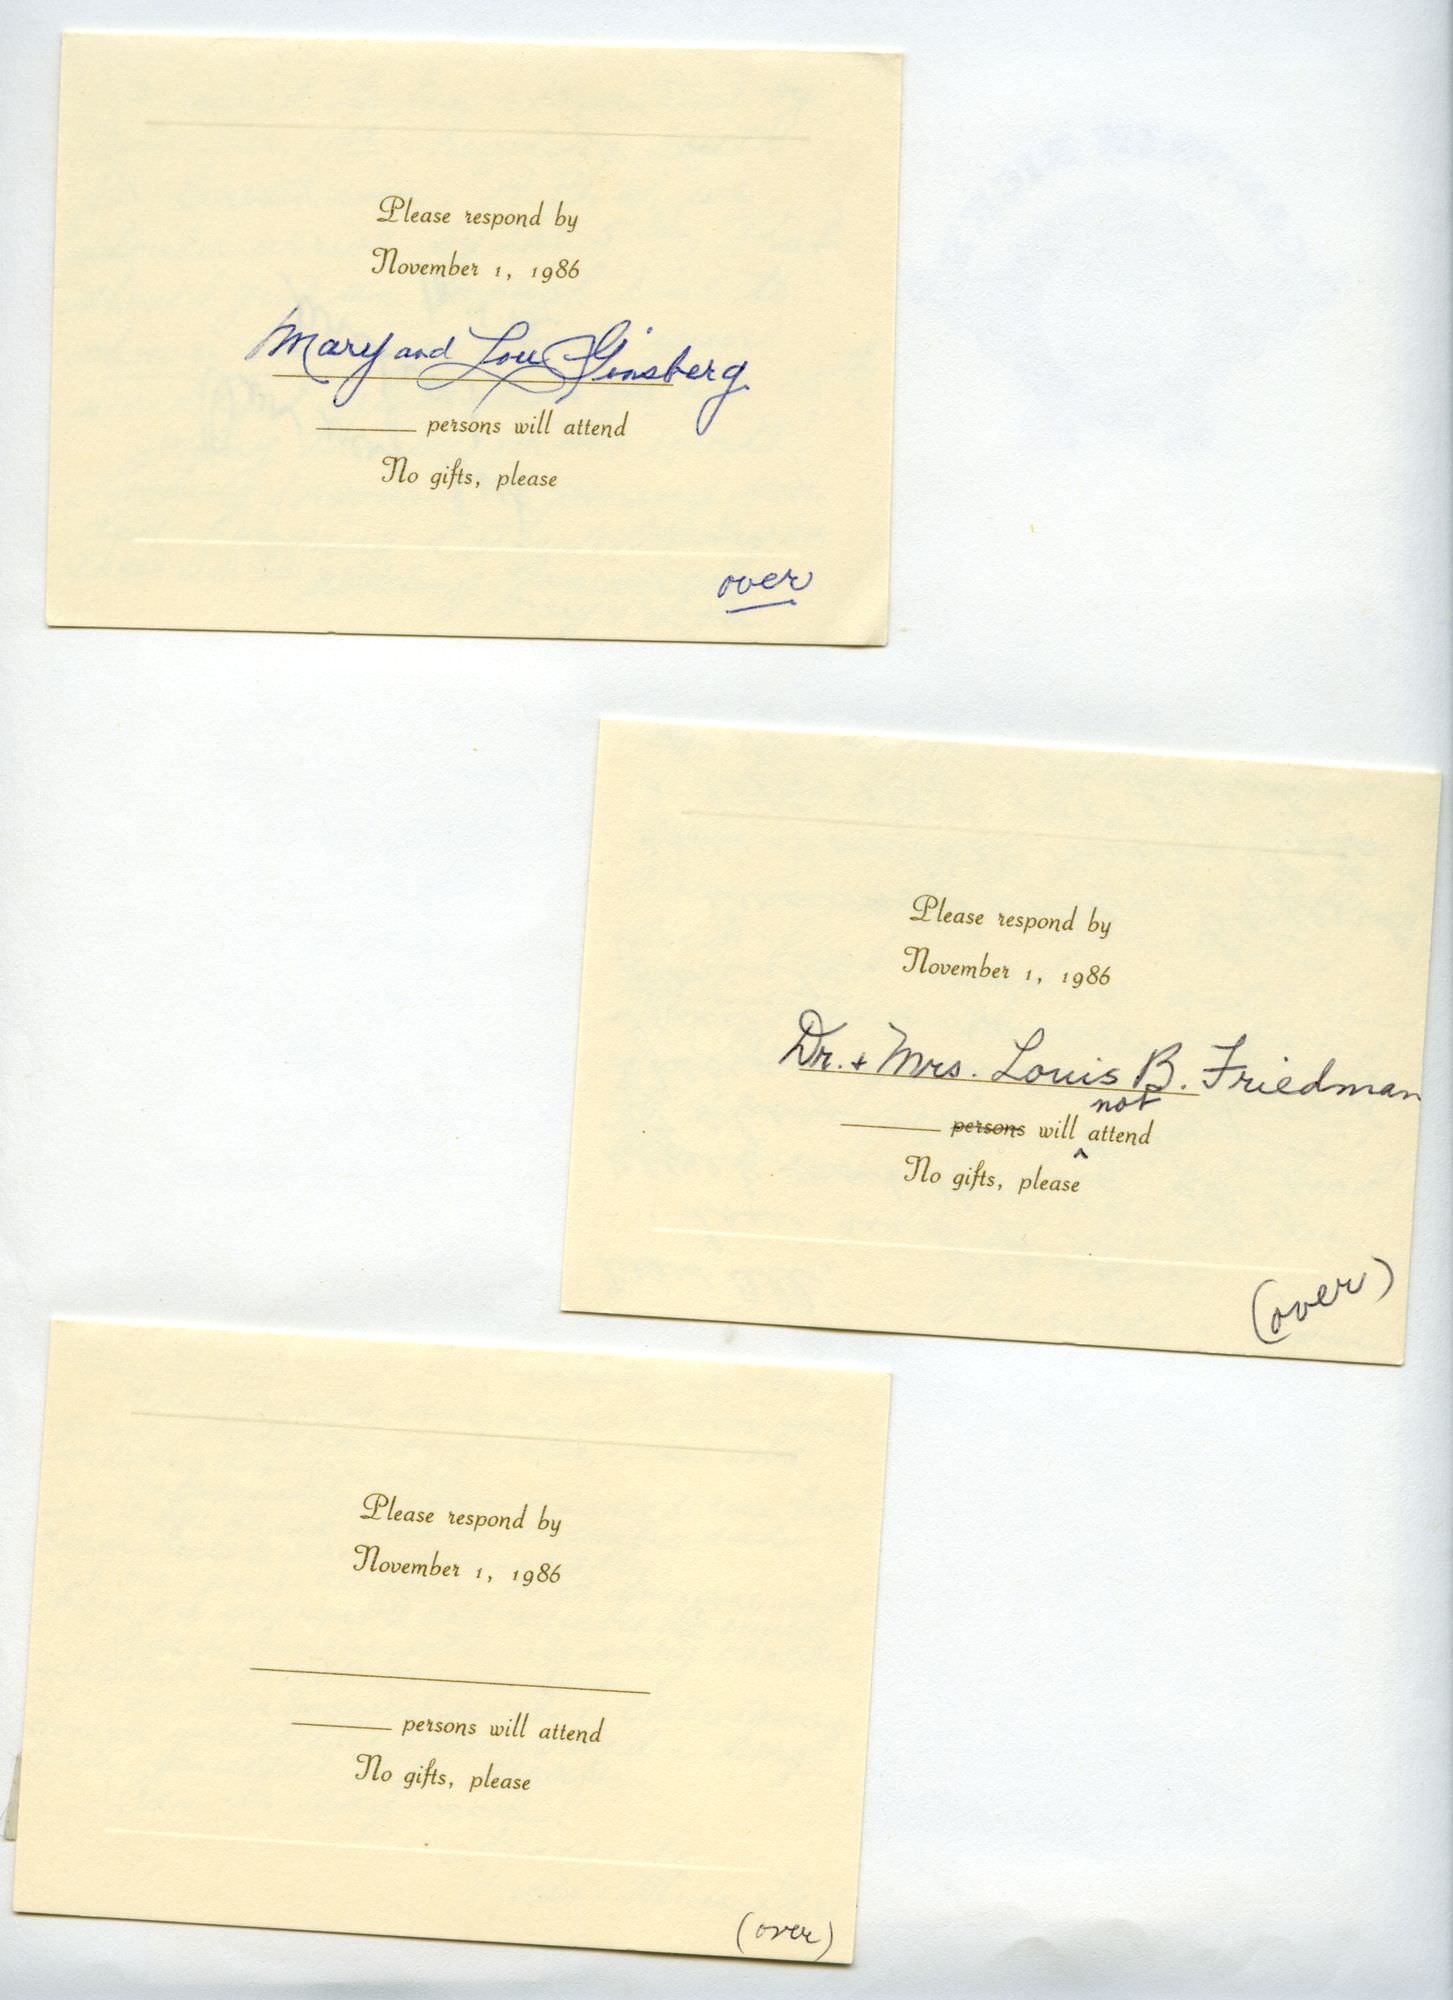 Please respond by
November 1, 1986
Mary and Lou Ginsberg
persons will attend
No gifts, please
over
Please respond by
November 1, 1986
Dr. + Mrs. Louis B. Friedman
not
persons will ^ attend
No gifts, please
(over)
Please respond by
November 1, 1986
persons will attend
No gifts, please
(over)